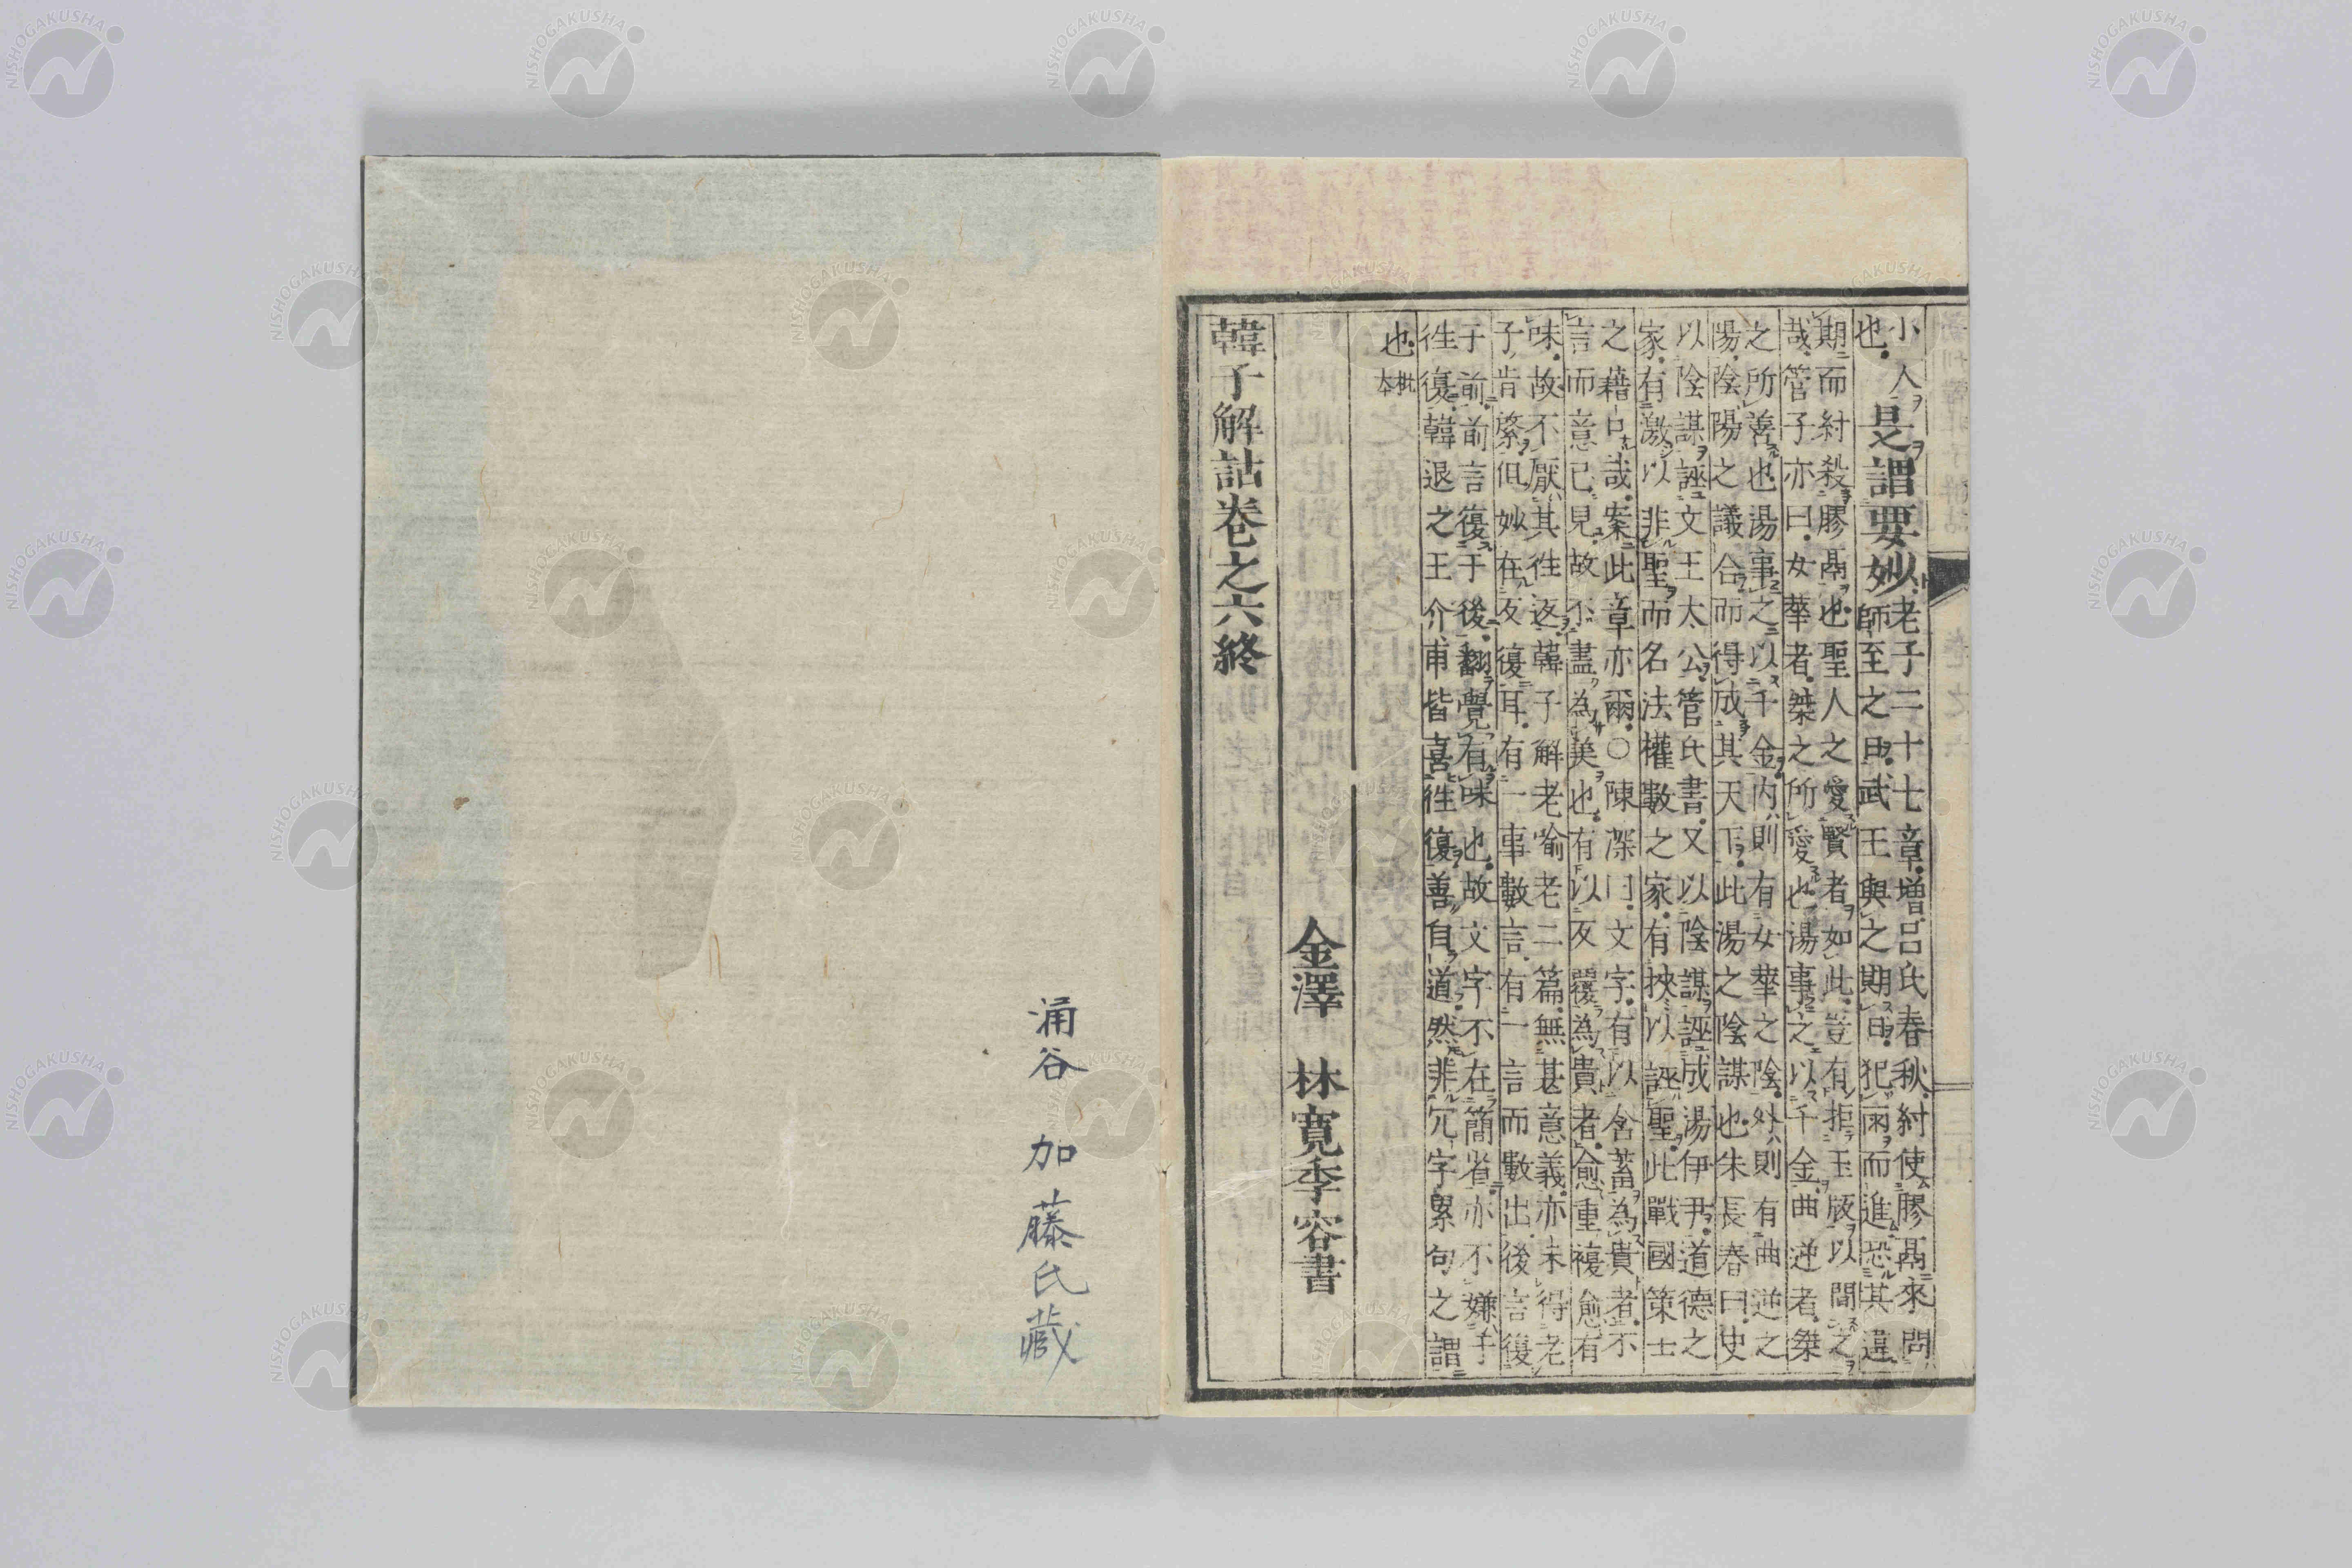 小人
也
是謂要妙
老子二十七章增呂氏春秋紂使膠鬲來問
師至之由武王與之期曰犯雨而進恐其違
期而紂殺膠鬲也聖人之愛賢者如此豈有拒玉版以間之
哉管子亦曰女華者桀之所愛也湯事之以千金曲逆者桀
之所善也湯事之以千金內則有女華之陰外則有曲逆之
陽陰陽之議合而得成其天下此湯之陰謀也朱長春曰史
以陰謀誣文王太公管氏書又以陰謀誣成湯伊尹道德之
家有激以非聖而名法權數之家有挾以誣聖此戰國策士
之藉口哉案此章亦爾○陳深曰文字有以含蓄為貴者不
言而意已見故不盡為美也有以反覆為貴者愈重複愈有
味故不厭其往返韓子解老喻老二篇無甚意義亦未得老
子肯綮但妙在反復耳有一事數言有一言而數出後言復
于前前言復于後翻覺有味也故文字不在簡省亦不嫌于
往復韓退之王介甫皆喜往復善自道然非冗字累句之謂
也批本
金澤 林寬季容書
韓子解詁卷之六終
涌谷 加藤氏藏
NISHOGAKUSHA